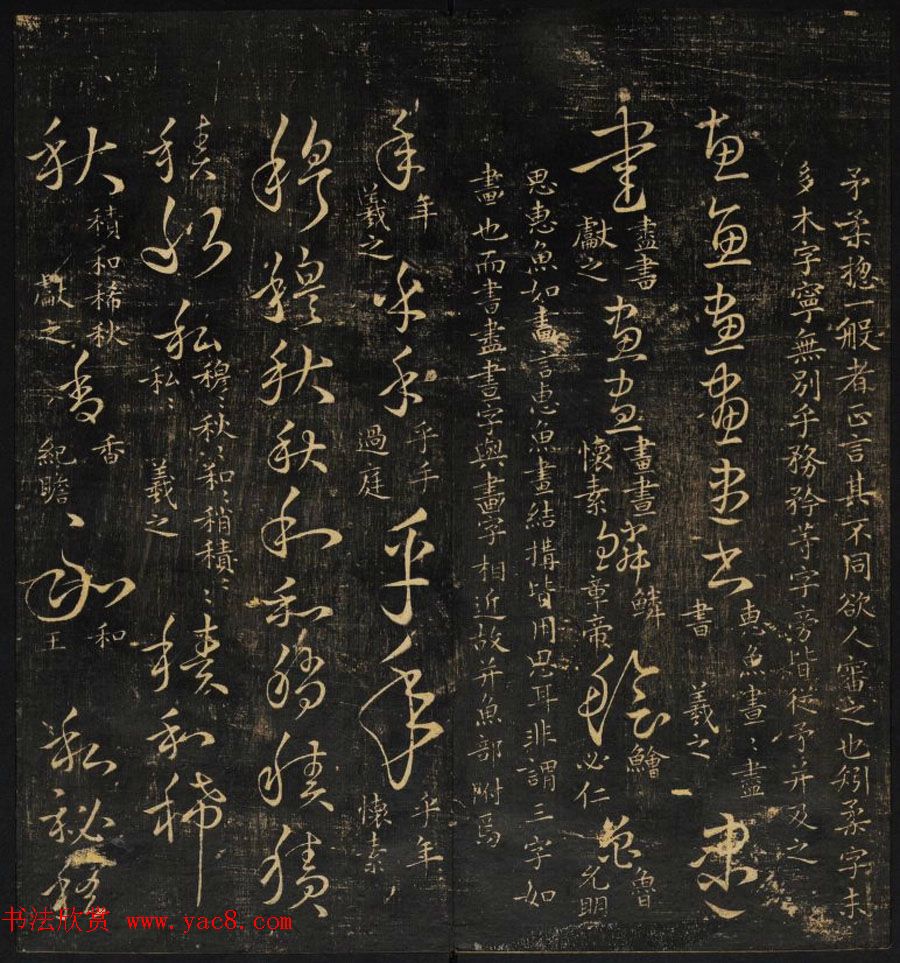 矛柔揔一般者正言其不同欲人審之也矧柔字未
多木字寧無別乎務矜等字旁皆從矛并及之
惠魚畫畫盡
書 羲之
盡書
獻之
畫晝 鱗 鱠 魯
懷素 章帝 必仁 允明
思惠魚如畫言惠魚畫結搆皆用思耳非謂三字如
畫也而書盡晝字與畫字相近故并魚部附焉
年 乎手 乎年
羲之 過庭 懷素
穆穆秋秋和和稍積積
積私私 積和稀
穆穆秋秋和和稍積積
私私 羲之
秋 香 和 私秘
積和稀秋 香 和
獻之 紀瞻 王
书法欣赏 www.yac8.com